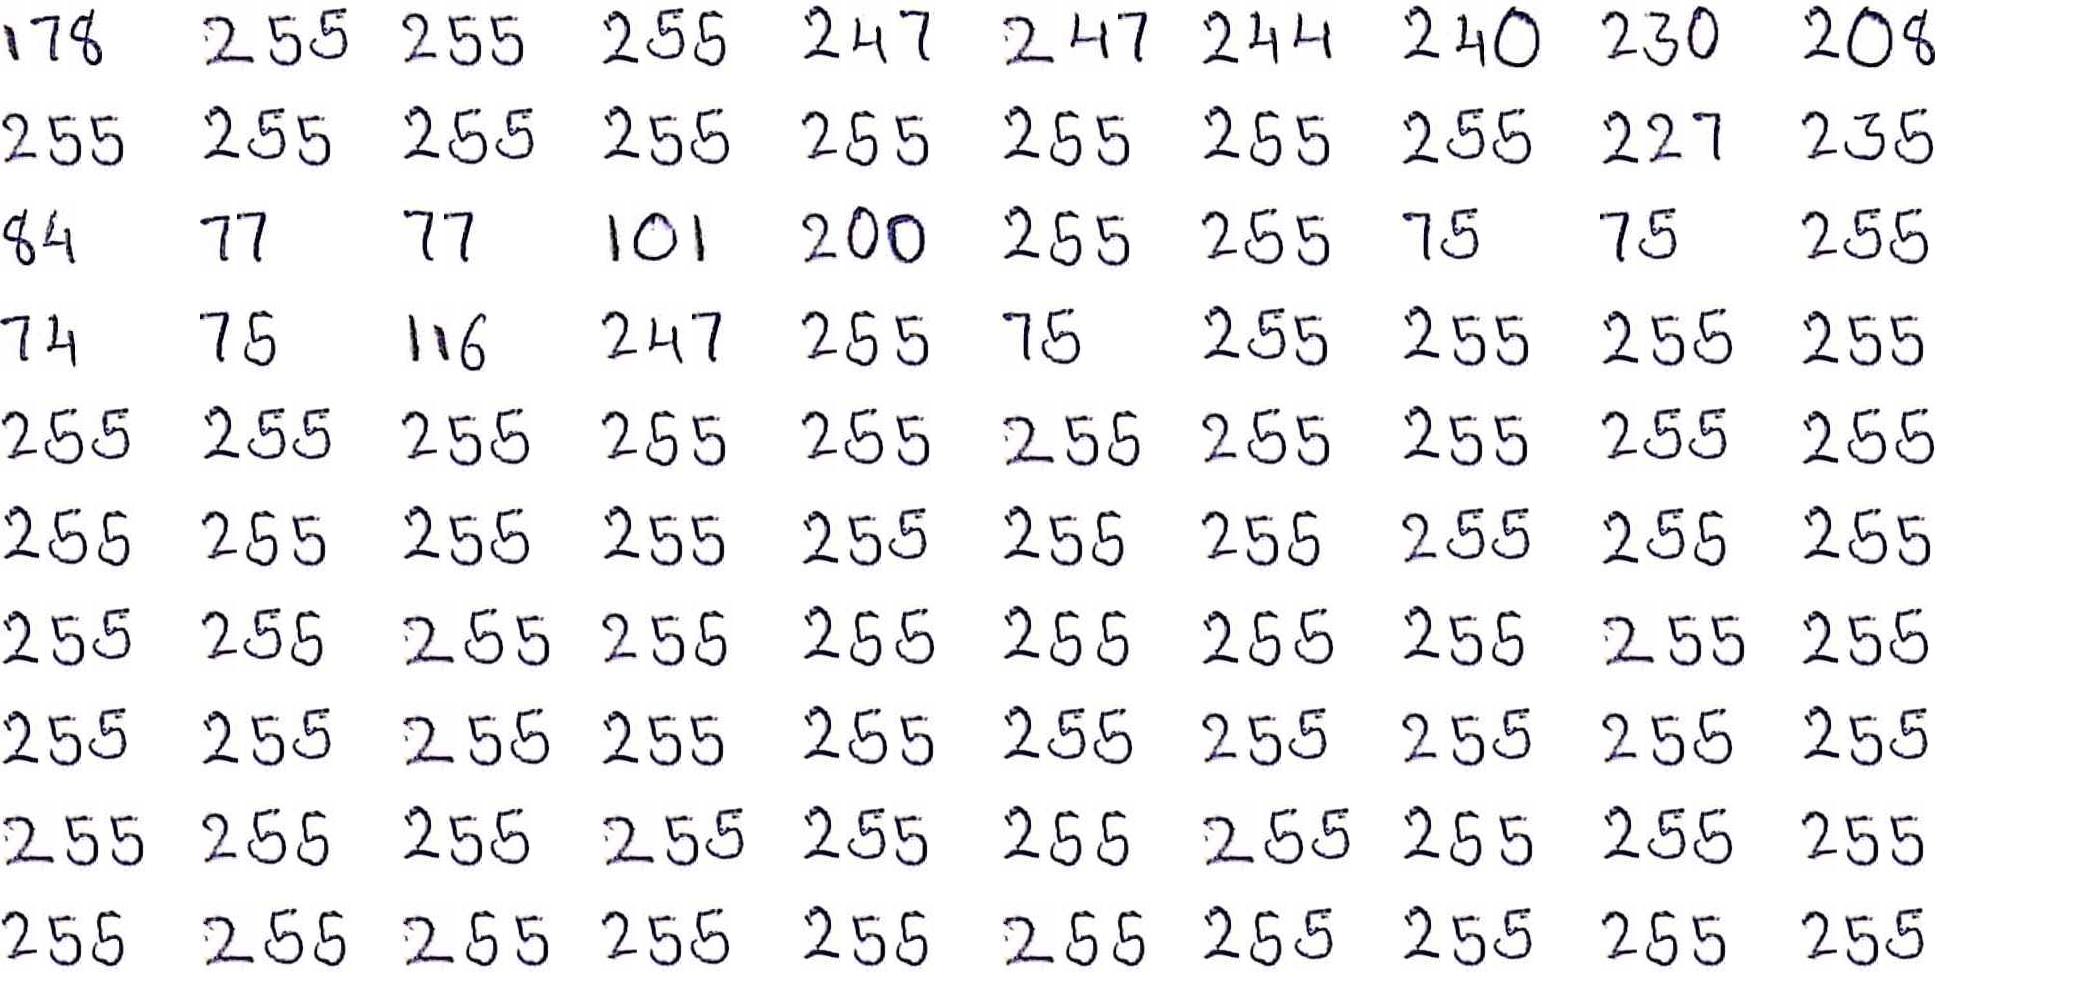 178 255 255 255 247 247 244 240 230 208
255 255 255 255 255 255 255 255 227 235
84 77 77 101 200 255 255 75 75 255
74 75 116 247 255 75 255 255 255 255
255 255 255 255 255 255 255 255 255 255
255 255 255 255 255 255 255 255 255 255
255 255 255 255 255 255 255 255 255 255
255 255 255 255 255 255 255 255 255 255
255 255 255 255 255 255 255 255 255 255
255 255 255 255 255 255 255 255 255 255